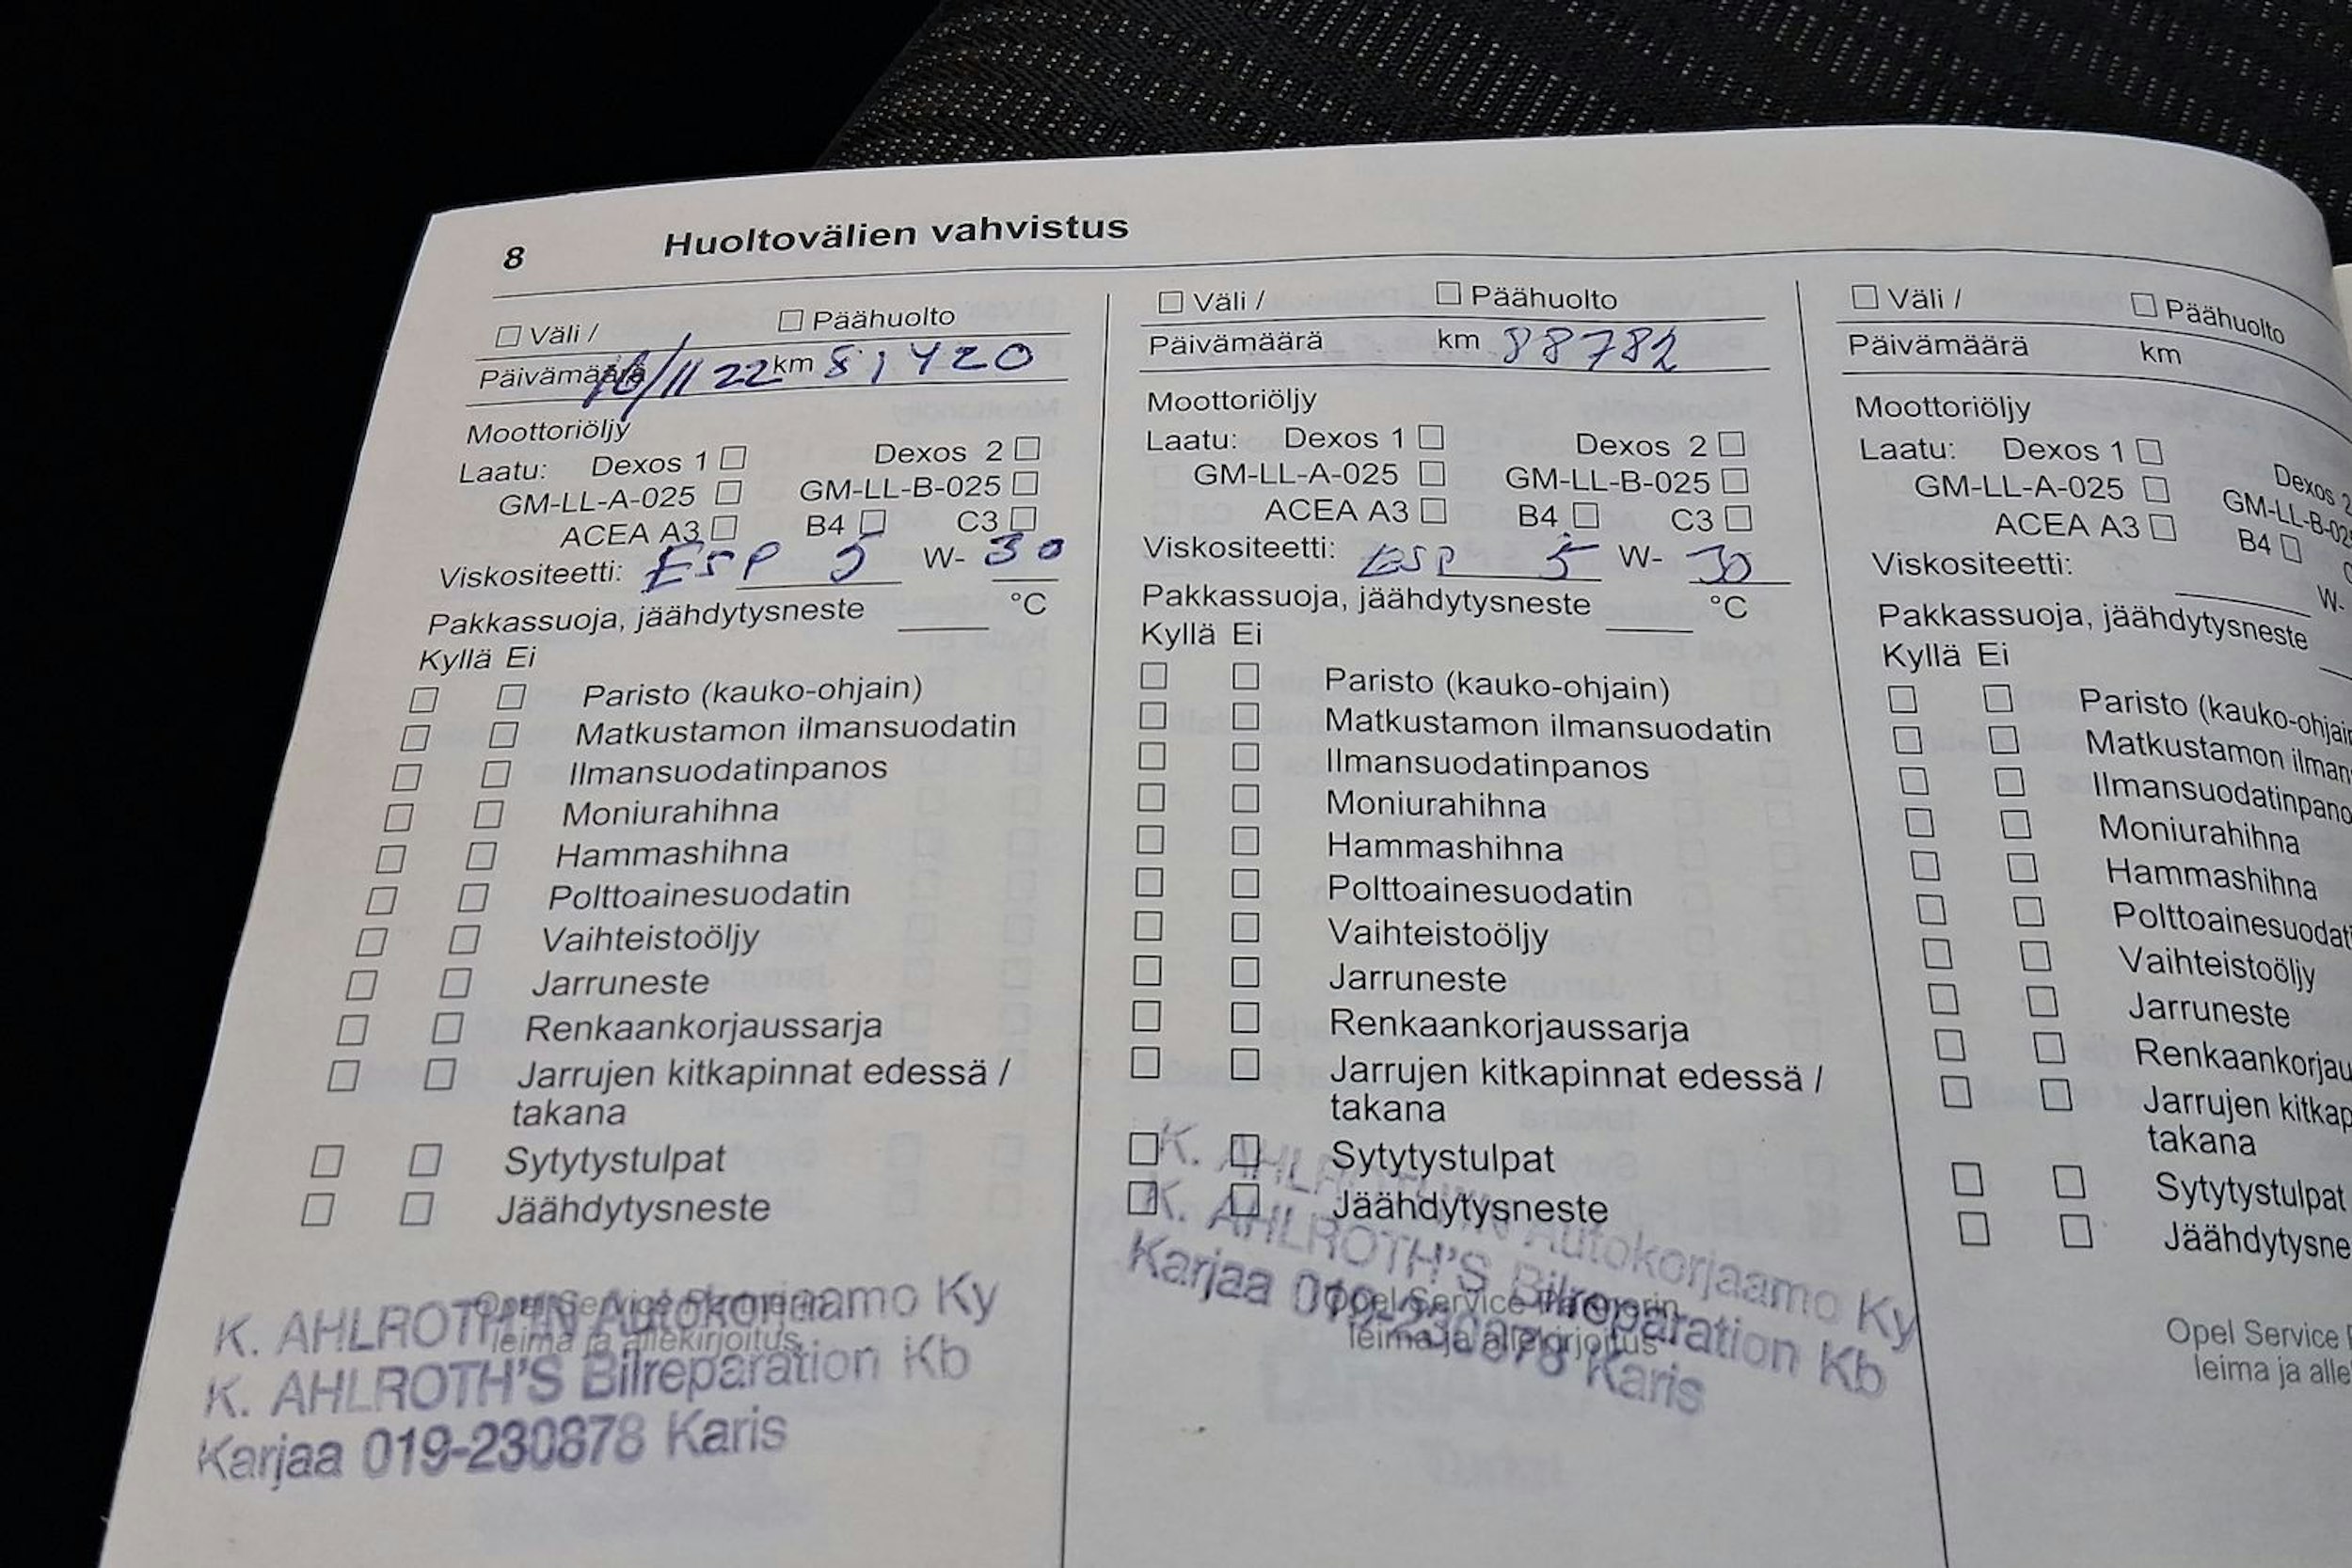 8 Huoltovälien vahvistus
☐ Väli / ☐ Päähuolto
Päivämäärä 16/11 22 km 81420
Moottoriöljy
Laatu: Dexos 1 ☐ Dexos 2 ☐
GM-LL-A-025 ☐ GM-LL-B-025 ☐
ACEA A3 ☐ B4 ☐ C3 ☐
Viskositeetti: ESP 5 W- 30
Pakkassuoja, jäähdytysneste ____ °C
Kyllä Ei
☐ ☐ Paristo (kauko-ohjain)
☐ ☐ Matkustamon ilmansuodatin
☐ ☐ Ilmansuodatinpanos
☐ ☐ Moniurahihna
☐ ☐ Hammashihna
☐ ☐ Polttoainesuodatin
☐ ☐ Vaihteistoöljy
☐ ☐ Jarruneste
☐ ☐ Renkaankorjaussarja
☐ ☐ Jarrujen kitkapinnat edessä /
takana
☐ ☐ Sytytystulpat
☐ ☐ Jäähdytysneste
Opel Service Partnerin
leima ja allekirjoitus
K. AHLROTH'IN Autokorjaamo Ky
K. AHLROTH'S Bilreparation Kb
Karjaa 019-230878 Karis
☐ Väli / ☐ Päähuolto
Päivämäärä km 88782
Moottoriöljy
Laatu: Dexos 1 ☐ Dexos 2 ☐
GM-LL-A-025 ☐ GM-LL-B-025 ☐
ACEA A3 ☐ B4 ☐ C3 ☐
Viskositeetti: ESP 5 W- 30
Pakkassuoja, jäähdytysneste ____ °C
Kyllä Ei
☐ ☐ Paristo (kauko-ohjain)
☐ ☐ Matkustamon ilmansuodatin
☐ ☐ Ilmansuodatinpanos
☐ ☐ Moniurahihna
☐ ☐ Hammashihna
☐ ☐ Polttoainesuodatin
☐ ☐ Vaihteistoöljy
☐ ☐ Jarruneste
☐ ☐ Renkaankorjaussarja
☐ ☐ Jarrujen kitkapinnat edessä /
takana
☐ ☐ Sytytystulpat
☐ ☐ Jäähdytysneste
Opel Service Partnerin
leima ja allekirjoitus
K. AHLROTH'IN Autokorjaamo Ky
K. AHLROTH'S Bilreparation Kb
Karjaa 019-230878 Karis
☐ Väli / ☐ Päähuolto
Päivämäärä km
Moottoriöljy
Laatu: Dexos 1 ☐ Dexos 2
GM-LL-A-025 ☐ GM-LL-B-02
ACEA A3 ☐ B4 ☐
Viskositeetti: ____ W-
Pakkassuoja, jäähdytysneste
Kyllä Ei
☐ ☐ Paristo (kauko-ohjain
☐ ☐ Matkustamon ilman
☐ ☐ Ilmansuodatinpano
☐ ☐ Moniurahihna
☐ ☐ Hammashihna
☐ ☐ Polttoainesuodati
☐ ☐ Vaihteistoöljy
☐ ☐ Jarruneste
☐ ☐ Renkaankorjau
☐ ☐ Jarrujen kitkap
takana
☐ ☐ Sytytystulpat
☐ ☐ Jäähdytysne
Opel Service
leima ja alle